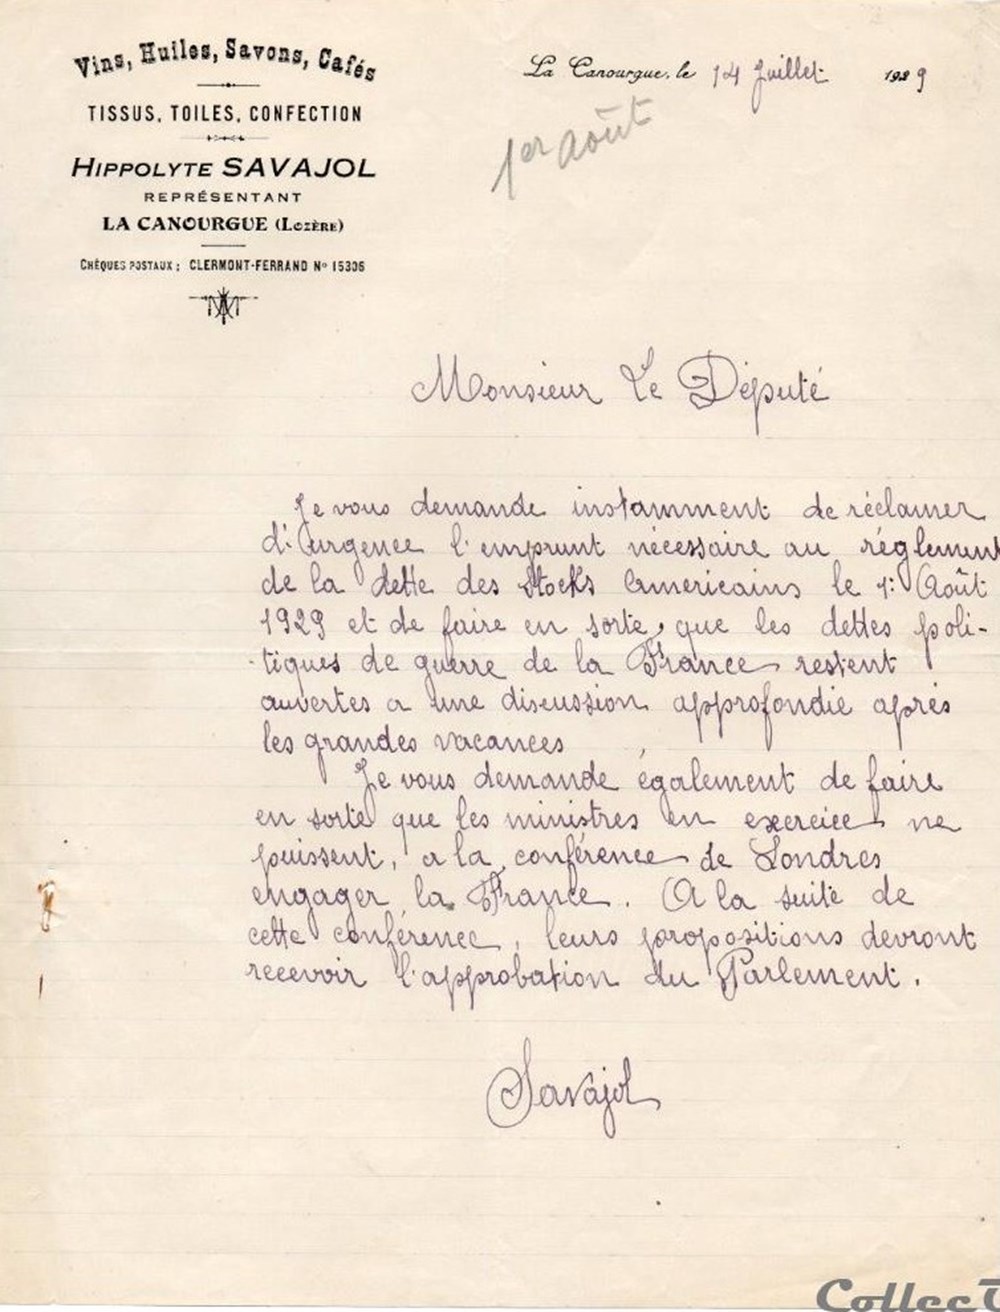 Vins, Huiles, Savons, Cafés
TISSUS, TOILES, CONFECTION
HIPPOLYTE SAVAJOL
REPRÉSENTANT
LA CANOURGUE (LOZÈRE)
CHÈQUES POSTAUX : CLERMONT-FERRAND No 15336
La Canourgue, le 14 Juillet 1929
1er août
Monsieur Le Député
Je vous demande instamment de réclamer
d'Urgence l'emprunt nécessaire au réglement
de la dette des Stocks Americains le 1: Août
1929 et de faire en sorte, que les dettes poli-
-tiques de guerre de la France restent
ouvertes a une discussion approfondie après
les grandes vacances
Je vous demande également de faire
en sorte que les ministres en exercice ne
puissent, a la conférence de Londres
engager la France. A la suite de
cette conférence, leurs propositions devront
recevoir l'approbation du Parlement.
Savajol